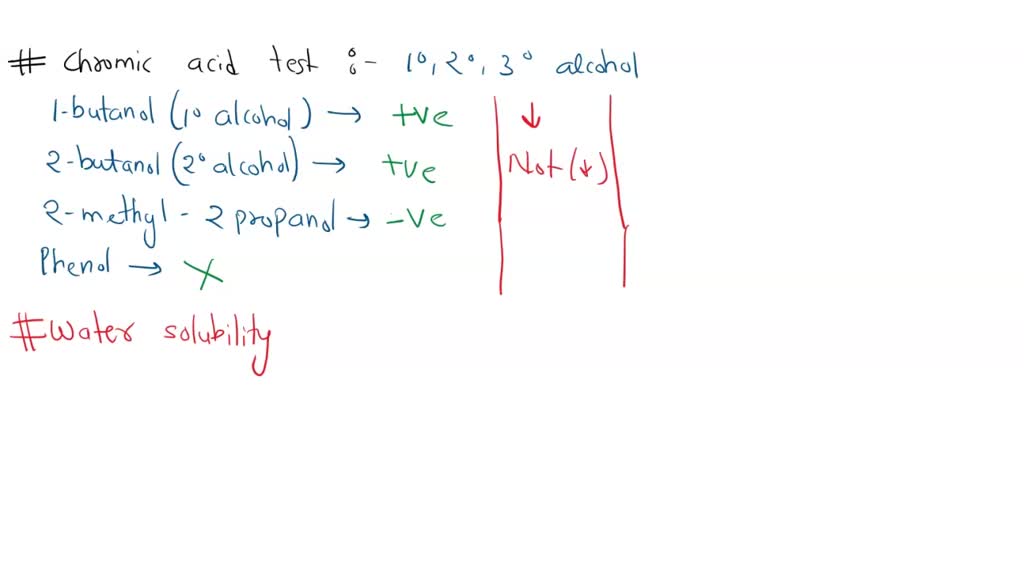 # Chromic acid test :- 1°, 2°, 3° alcohol
1-butanol (1° alcohol) → +ve ↓
2-butanol (2° alcohol) → +ve Not (↓)
2-methyl - 2 propanol → -ve
Phenol → X
# Water solubility